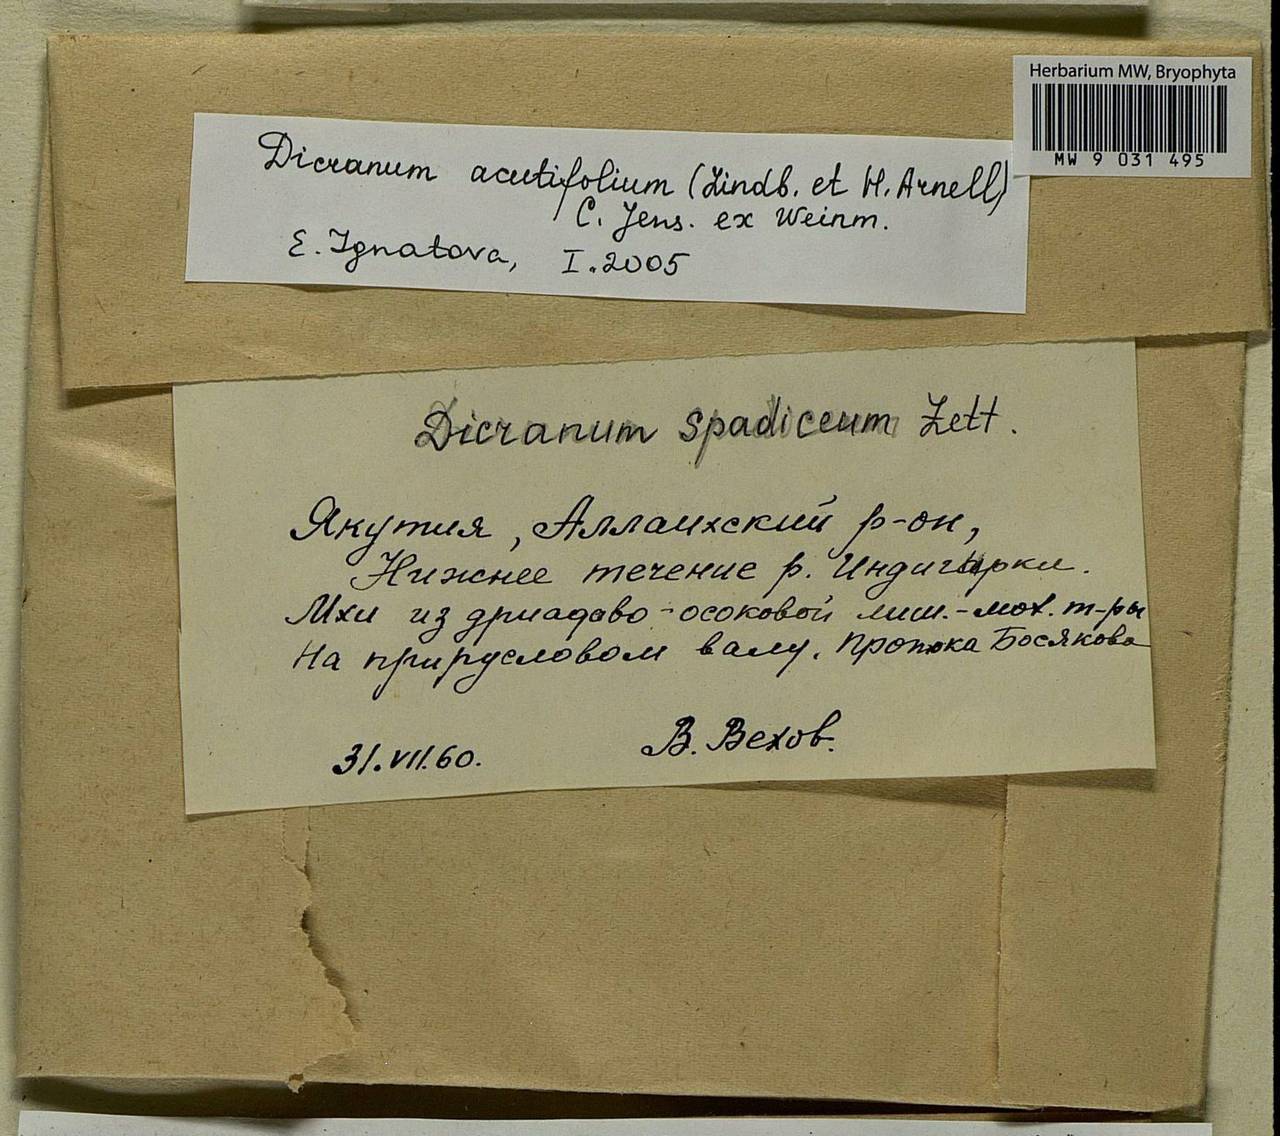 Herbarium MW, Bryophyta
MW 9 031 495
Dicranum acutifolium (Lindb. et H. Arnell)
C. Jens. ex Weinm.
E. Ignatova, I.2005
Dicranum spadiceum Zett.
Якутия, Аллаихский р-он,
Нижнее течение р. Индигирки.
Мхи из дриадово-осоковой лиш.-мох. т-ры
На прирусловом валу. Протока Босякова
31.VII.60. В. Вехов.